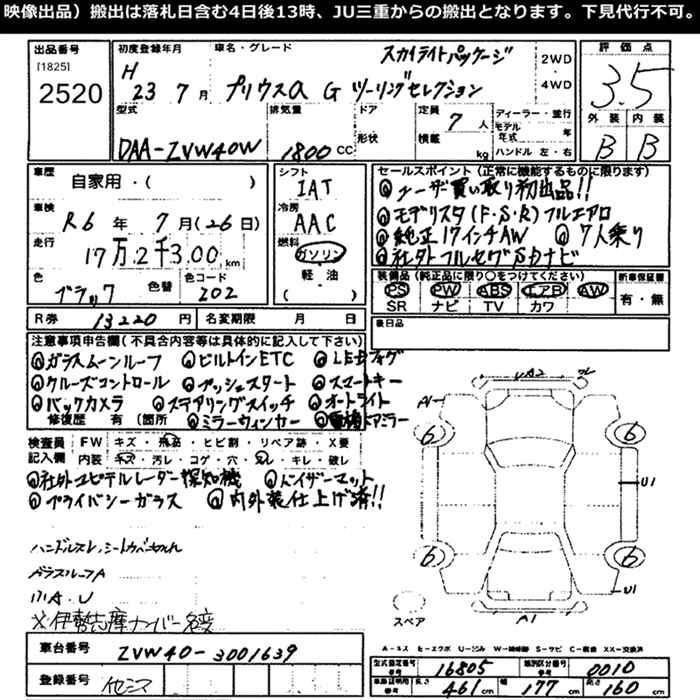 映像出品）搬出は落札日含む4日後13時、JU三重からの搬出となります。下見代行不可。
出品番号
[1825]
2520
初度登録年月
H 23 7 月
車名・グレード
スカイライトパッケージ
プリウスα G ツーリングセレクション
2WD
・
4WD
評価点
3.5
外装 内装
B B
型式
DAA-ZVW40W
排気量
1800 CC
ドア
形状
定員
7 人
積載
kg
ディーラー・並行
モデル年式 年
ハンドル 左・右
車歴
自家用・( )
車検
R6 年 7 月(26 日)
走行
17万.2千300 km
色
ブラック
色替
色コード
202
シフト
IAT
冷房
AAC
燃料
ガソリン
・
軽・油
( )
セールスポイント（正常に機能するものに限ります）
ユーザー買い取り初出品!!
モデリスタ(F・S・R)フルエアロ
純正17インチAW 7人乗り
社外フルセグSDナビ
装備品（純正品に限り○をつけてください）
PS PW ABS エアB AW
SR ナビ TV カワ
新車保証書
有・無
後日品
R券 13220 円
名変期限 月 日
注意事項申告欄（不具合内容等は具体的に記入して下さい）
ガラスムーンルーフ ビルトインETC LEDフォグ
クルーズコントロール プッシュスタート スマートキー
バックカメラ ステアリングスイッチ オートライト
修復歴 有（箇所 ミラーウィンカー 電格ドアミラー
検査員記入欄
FW キズ・飛石・ヒビ割・リペア跡・X要
内装 キズ・汚レ・コゲ・穴・スレ・キレ・破レ
社外ユピテルレーダー探知機 バイザーマット
プライバシーガラス 内外装仕上げ済!!
ハンドルスレ、シートカバー切れ
ガラスルーフA
小A.U
※伊勢志摩ナンバー名変
A1
U2
6
6
6
6
U1
U1
A1
スペア
車台番号
ZVW40-3001639
登録番号
イセシマ
型式指定番号
参考
16805
類別区分番号
参考
0010
車検証明記
参考
長さ 461 cm
幅 177 cm
高さ 160 cm